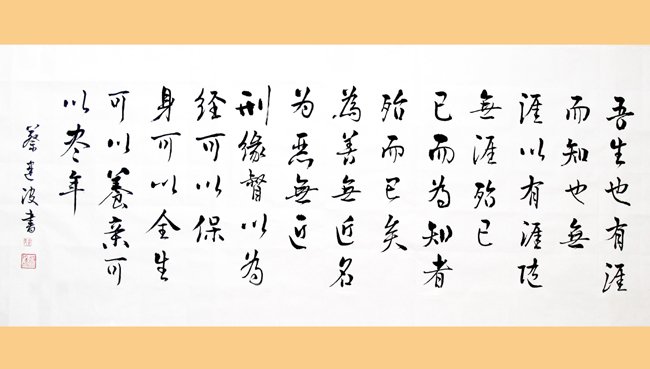 吾生也有涯
而知也無
涯以有涯随
無涯殆已
已而為知者
殆而已矣
為善無近名
为恶無近
刑缘督以为
经可以保
身可以全生
可以養亲可
以尽年
蔡波書